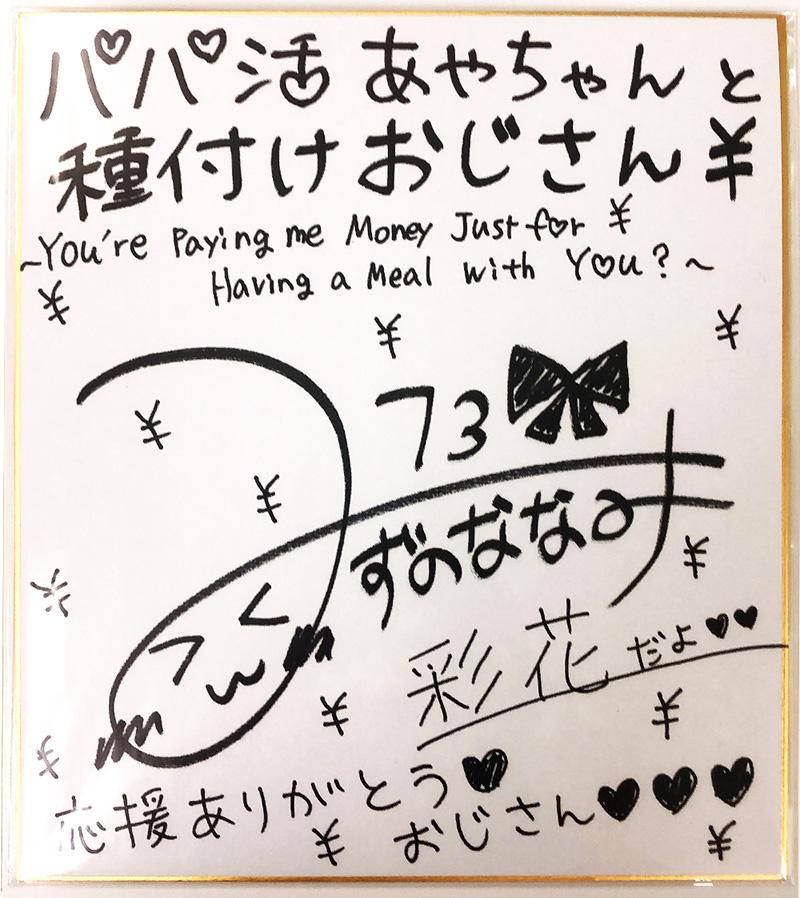 パパ活 あやちゃんと
種付けおじさん¥
~You're Paying me Money Just for ¥
Having a Meal with You?~
¥
¥
¥
¥
73
¥
ずのななみ
¥
¥
彩花だよ
¥
¥
¥
応援ありがとう
おじさん
¥
¥